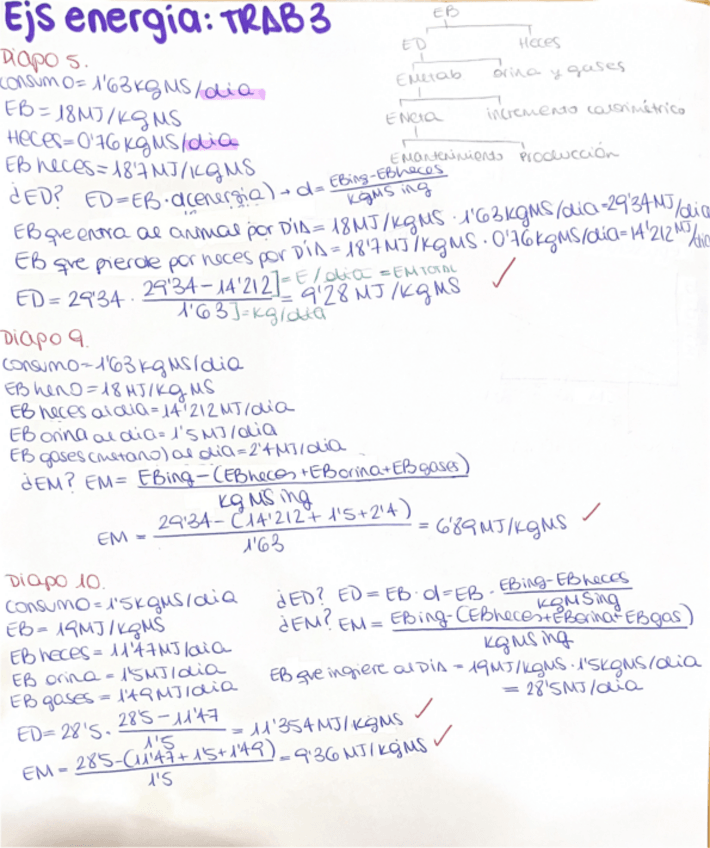 Ejs energía: TRAB 3
EB
ED Heces
EMetab orina y gases
ENeta incremento calorimétrico
EMantenimiento Producción
Diapo 5.
consumo = 1'63 kg MS/dia
EB = 18 MJ/kg MS
Heces = 0'76 kg MS/dia
EB heces = 18'7 MJ/kg MS
¿ED? ED = EB · d(energia) → d = EBing - EBheces / kg MS ing
EB que entra al animal por DÍA = 18 MJ/kg MS · 1'63 kg MS/dia = 29'34 MJ/dia
EB que pierde por heces por DÍA = 18'7 MJ/kg MS · 0'76 kg MS/dia = 14'212 MJ/dia
ED = 29'34 · 29'34 - 14'212 ] = E/dia = EM TOTAL / 1'63 ] = kg/dia = 9'28 MJ/kg MS ✓
Diapo 9.
consumo = 1'63 kg MS/dia
EB heno = 18 MJ/kg MS
EB heces al dia = 14'212 MJ/dia
EB orina al dia = 1'5 MJ/dia
EB gases (metano) al dia = 2'4 MJ/dia
¿EM? EM = EBing - (EBheces + EBorina + EBgases) / kg MS ing
EM = 29'34 - (14'212 + 1'5 + 2'4) / 1'63 = 6'89 MJ/kg MS ✓
Diapo 10.
consumo = 1'5 kg MS/dia
EB = 19 MJ/kg MS
EB heces = 11'47 MJ/dia
EB orina = 1'5 MJ/dia
EB gases = 1'49 MJ/dia
¿ED? ED = EB · d = EB · EBing - EBheces / kg MS ing
¿EM? EM = EBing - (EBheces + EBorina + EBgas) / kg MS ing
EB que ingiere al DÍA = 19 MJ/kg MS · 1'5 kg MS/dia
= 28'5 MJ/dia
ED = 28'5 · 28'5 - 11'47 / 1'5 = 11'354 MJ/kg MS ✓
EM = 28'5 - (11'47 + 1'5 + 1'49) / 1'5 = 9'36 MJ/kg MS ✓